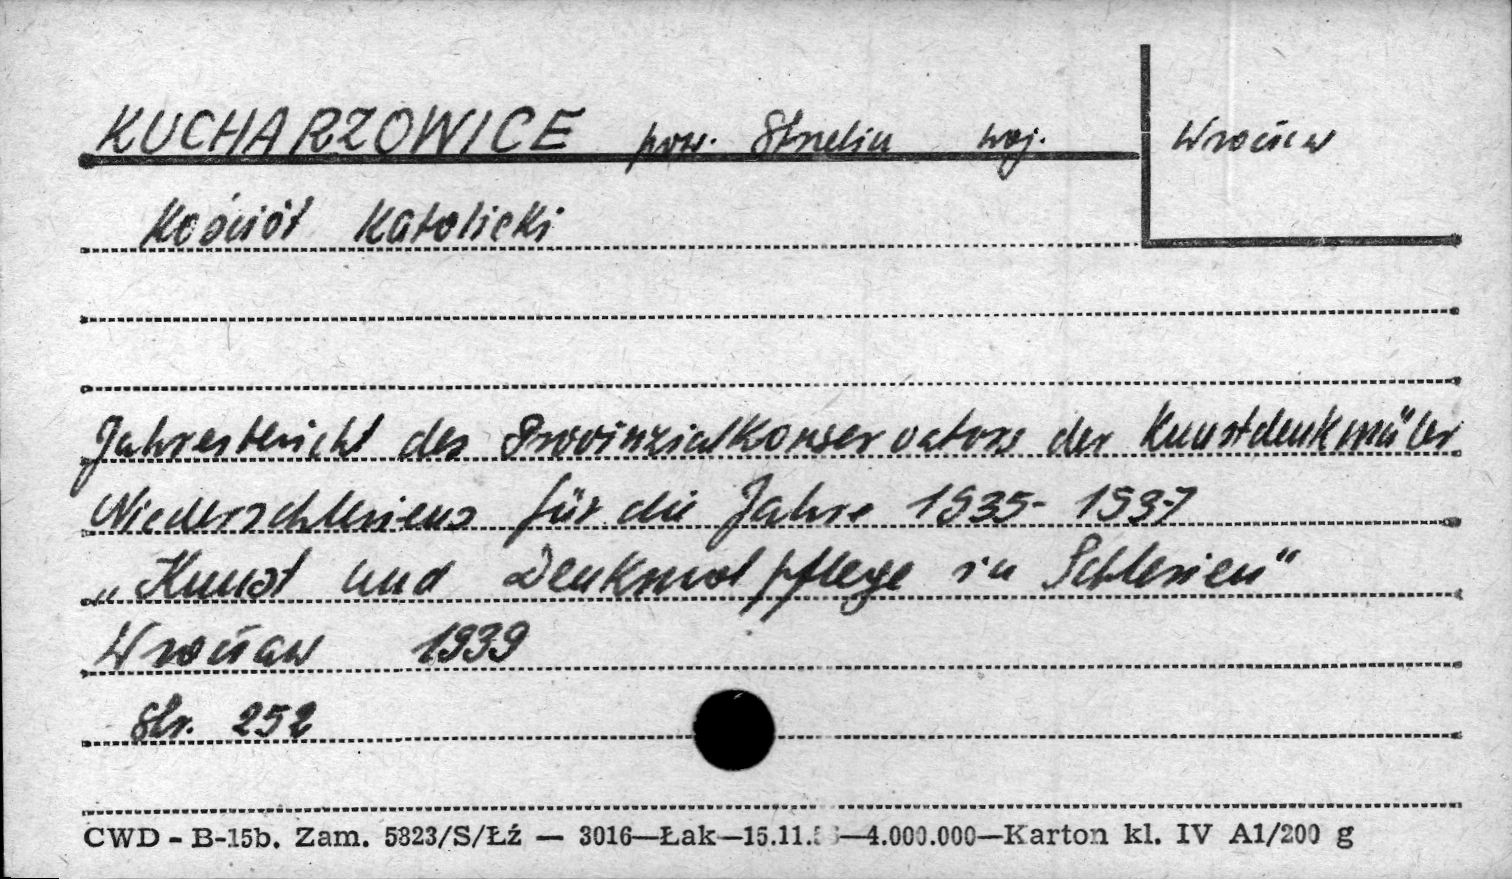 KUCHARZOWICE pow. Strzelin woj. Wrocław
Kościół Katolicki
Jahresbericht des Provinzialkonservators der Kunstdenkmäler
Niederschlesiens für die Jahre 1935-1937
„Kunst und Denkmalpflege in Schlesien"
Wrocław 1939
Str. 252
CWD - B-15b. Zam. 5823/S/Łź — 3016—Łak—15.11. —4.000.000—Karton kl. IV A1/200 g